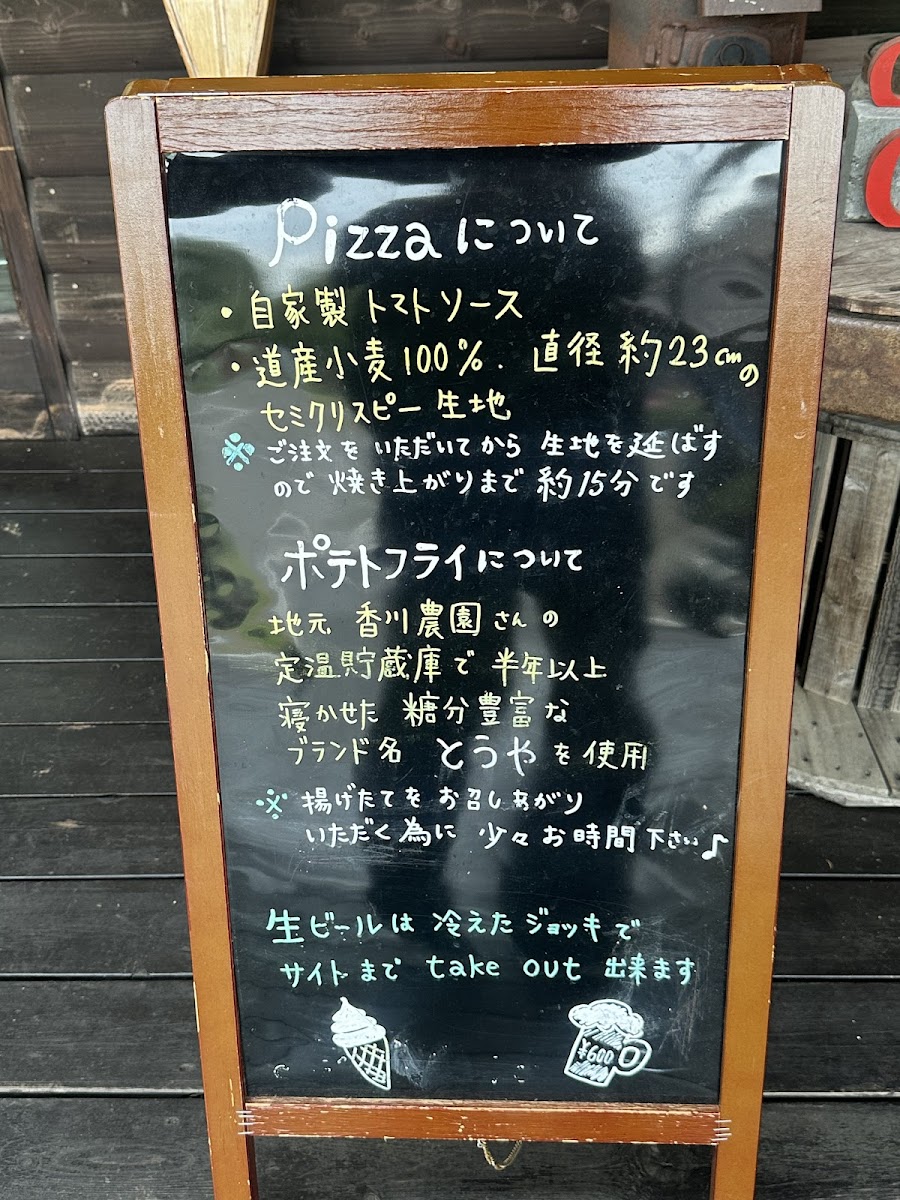 Pizzaについて
・自家製トマトソース
・道産小麦100%. 直径約23cmの
セミクリスピー生地
※ご注文をいただいてから生地を延ばす
ので焼き上がりまで約15分です
ポテトフライについて
地元 香川農園さんの
定温貯蔵庫で半年以上
寝かせた糖分豊富な
ブランド名 とうやを使用
※揚げたてをお召しあがり
いただく為に少々お時間下さい♪
生ビールは冷えたジョッキで
サイトまで take out 出来ます
¥600